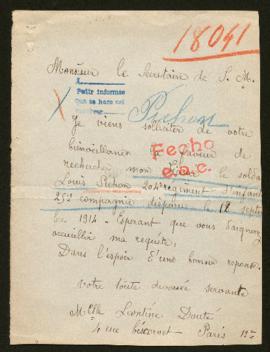 18041
Monsieur le Secrétaire de S. M.
Pedir informes
que se hace así
Pichon
Je viens solliciter de votre
bienveillance la faveur de
rechercher mon
le soldat
Fecho
e.o.c.
Louis Pichon 204e régiment d'infanterie
25e compagnie disparu le 12 septembre
1914 - Espérant que vous daignerez
accueillir ma requête,
Dans l'espoir d'une bonne réponse.
votre toute dévouée servante
Melle Léontine Douté
4 rue
Paris 12e